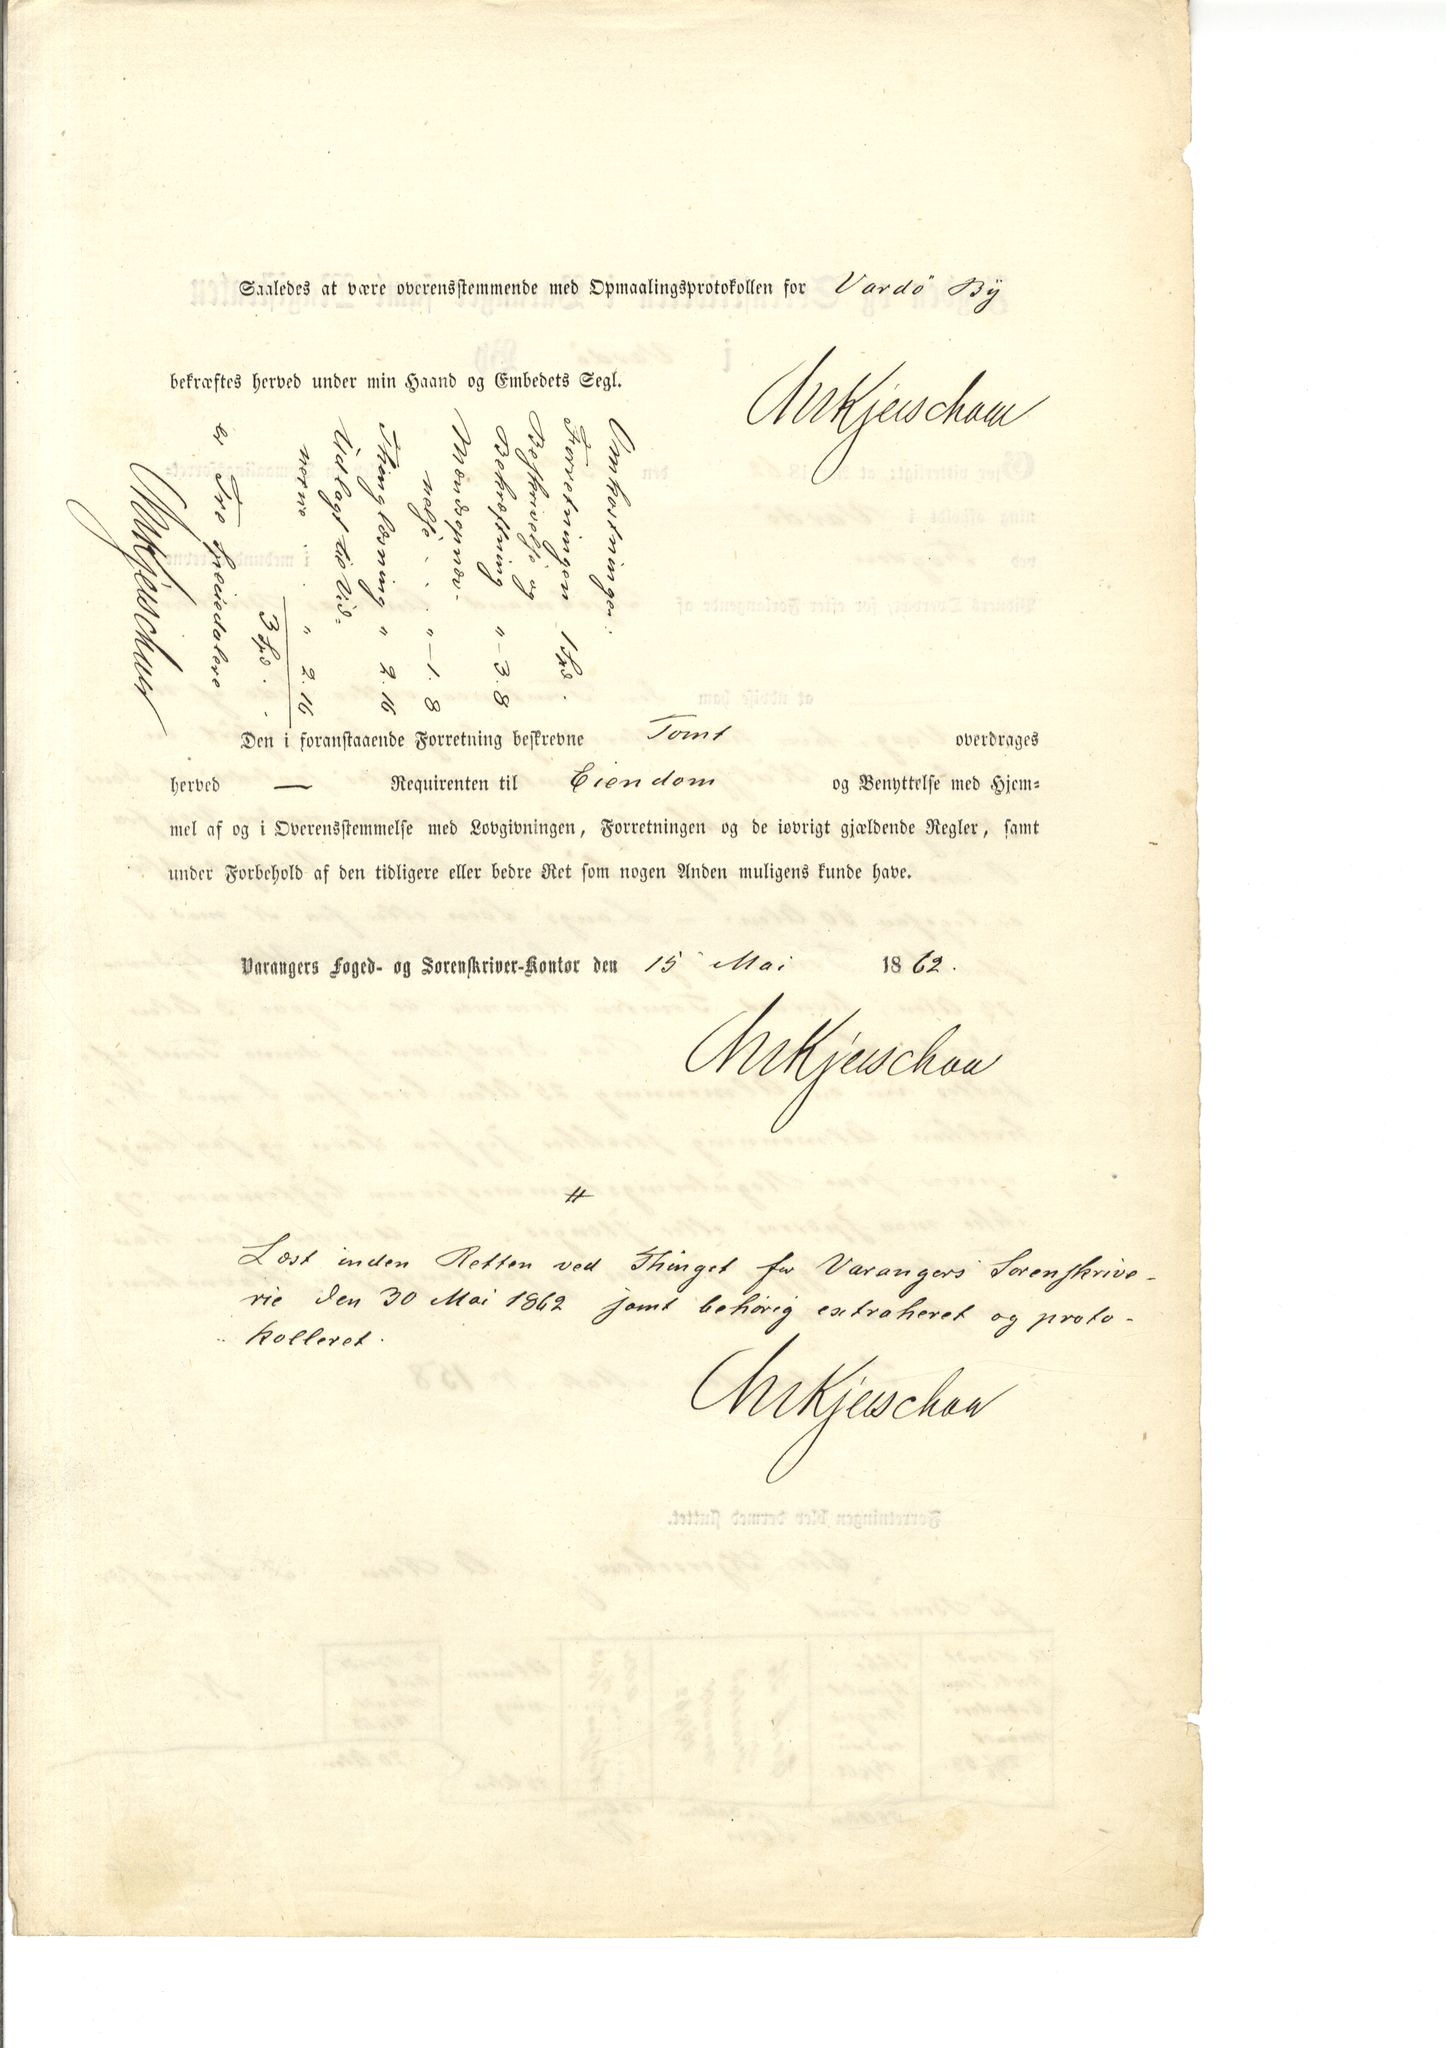 Saaledes at være overensstemmende med Opmaalingsprotokollen for Vardö By
bekræftes herved under min Haand og Embedets Segl.
Omkostninger:
Forretningen 1 Spd. -
Beskrivelse og
Bekræftning " - 3. 8
Mændsopnæv-
nelse . . " - 1. 8
Thinglæsning " 2. 16
Udlagt til Vid-
nerne . . " 2. 16
3 Spd. . -
er Tre Speciedalere
Den i foranstaaende Forretning beskrevne Tomt overdrages
herved — Requirenten til Eiendom og Benyttelse med Hjem-
mel af og i Overensstemmelse med Lovgivningen, Forretningen og de iøvrigt gjældende Regler, samt
under Forbehold af den tidligere eller bedre Ret som nogen Anden muligens kunde have.
Varangers Foged- og Sorenskriver-Kontor den 15 Mai 1862.
Læst inden Retten ved Thinget for Varangers Sorenskrive-
rie den 30 Mai 1862 samt behørig extraheret og proto-
kolleret.